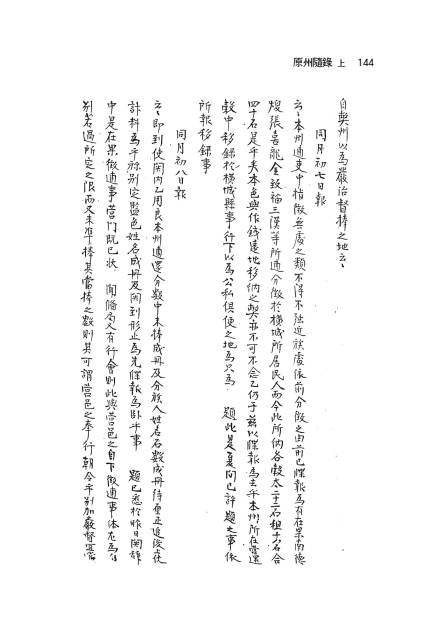 原州隨錄 上 144
自奧州以爲嚴治督捧之地云云
同月初七日報
云云本州逋吏中指徵無處之類不得不
族處依前分徵之由前已牒報爲有在果南德
煥張喜龍金致福三漢等所逋分徵於橫城所居民人而今此所納各穀太二十二石租十六石合
四十石是乎矣本色
作錢遠地移納之
亦不可不念乙仍于玆以牒報爲去乎本州所在
還
穀中移錄於橫城縣事行下以爲公私俱便之地爲只爲 題此是夏間已許題之事依
所報移錄事
同月初八日報
云云卽到使關內乙用良本州逋還分數中未捧成冊及分
人姓名石數成冊待
正追後
計料爲乎
別定監色姓名成冊及關到形止爲先牒報爲臥乎事 題已悉於昨日關辭
中是在果徵逋事營門旣已狀 聞
局又有行會則此與營邑之自下徵逋事体尤爲
別若過所定之限而又未準捧其當捧之數則其可謂營邑之奉行朝令乎別加嚴督